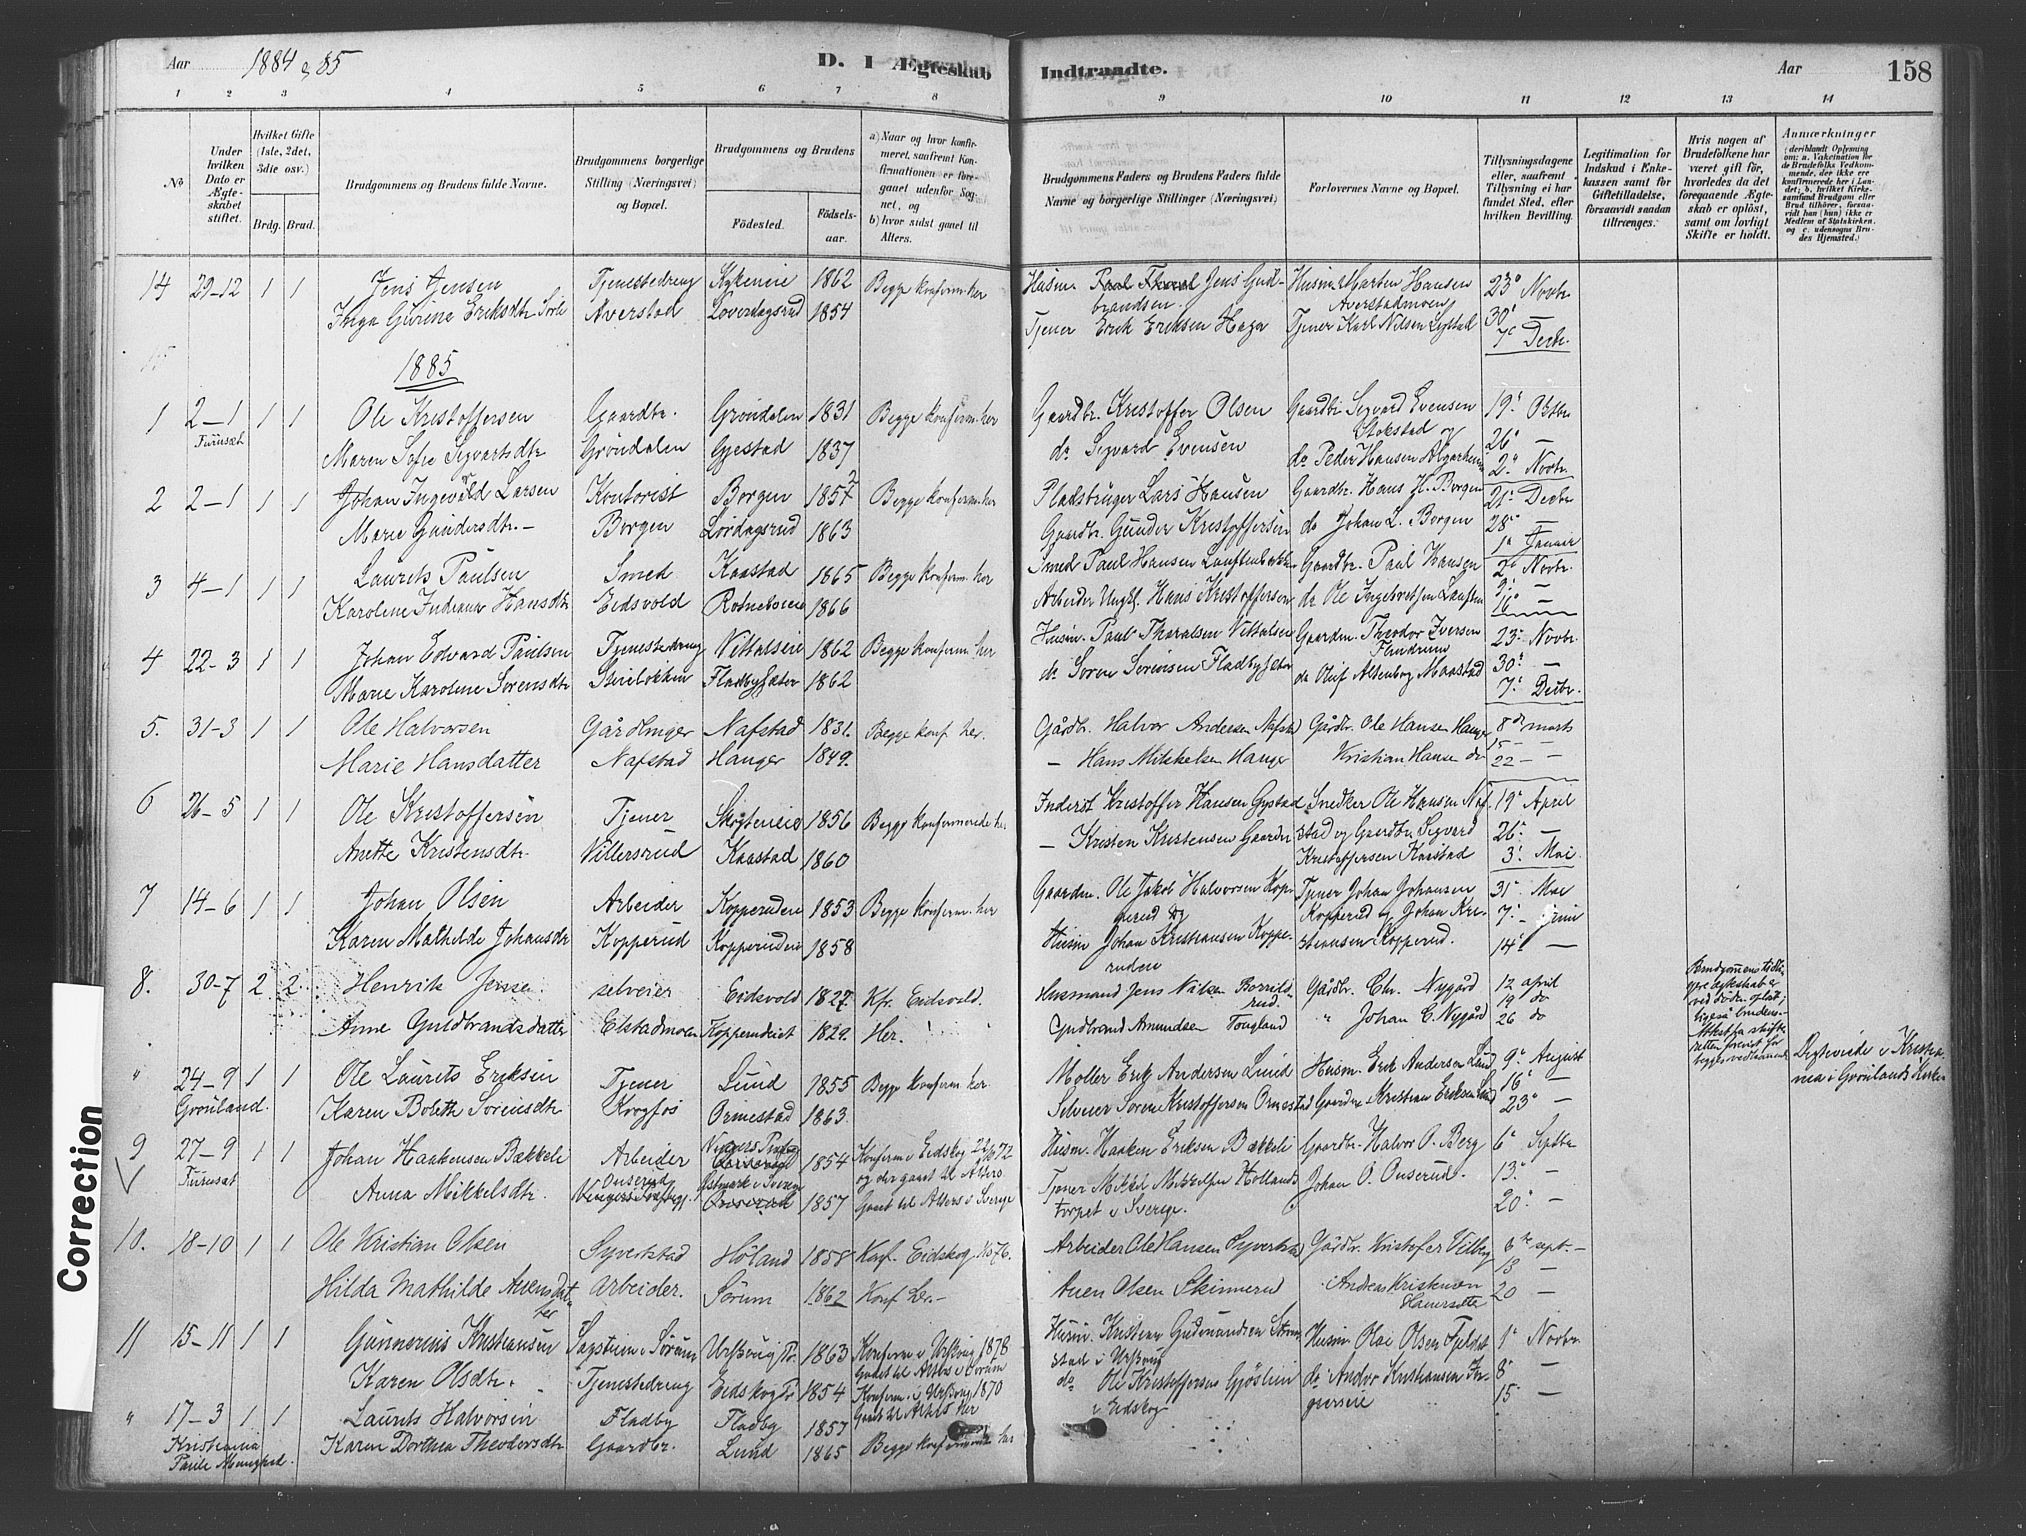 Aar 1884 & 85
D. I Ægteskab Indtraadte.
Aar
158
1 2 3 4 5 6 7 8 9 10 11 12 13 14
No
Under hvilken Dato er Ægteskabet stiftet.
Hvilket Gifte (1ste, 2det, 3die osv.)
Brdg. Brud.
Brudgommens og Brudens fulde Navne.
Brudgommens borgerlige Stilling (Næringsvei) og Bopæl.
Brudgommens og Brudens
Fødested.
Fødselsaar.
a) Naar og hvor konfirmeret, saafremt Konfirmationen er foregaaet udenfor Sognet, og
b) hvor sidst gaaet til Alters.
Brudgommens Faders og Brudens Faders fulde Navne og borgerlige Stillinger (Næringsvei)
Forlovernes Navne og Bopæl.
Tillysningsdagene eller, saafremt Tillysning ei har fundet Sted, efter hvilken Bevilling.
Legitimation for Indskud i Enkekassen samt for Giftetilladelse, forsaavidt saadan tiltrænges.
Hvis nogen af Brudefolkene har været gift før, hvorledes da det foregaaende Ægteskab er opløst, samt om lovligt Skifte er holdt.
Anmærkninger (deriblandt Oplysning om: a. Vakcination for de Brudefolks Vedkommende, der ikke ere konfirmerede her i Landet; b. hvilket Kirkesamfund Brudgom eller Brud tilhører, forsaavidt han (hun) ikke er Medlem af Statskirken, og c. udensogns Brudes Hjemsted.)
14 29-12 1 1 Jens Jensen Tjenestedreng 1862 Begge konferm. her Husm. Jens Gudbrandsen Husm. Morten Hansen Averstadmoen 23 Novbr
Inga Gurine Eriksdtr Averstad 1854 Tjener Erik Eriksen Haga Tjener Karl Nilsen 30 —
7 Decbr.
15
1885
1 2-1 1 1 Ole Kristoffersen Gaardbr. Grøndalen 1831 Begge konferm. her Gaardbr. Kristoffer Olsen Gaardbr. Sigvard Evensen Stokstad og 19 Oktbr
Furuset Maren Sofie Sigvartsdtr Grøndalen Gjestad 1837 do Sigvard Evensen do Peder Hansen 26 —
2 Novbr.
2 2-1 1 1 Johan Ingevald Larsen Kontorist Borgen 1857 Begge konferm. her Pladsbruger Lars Hansen Gaardbr. Hans H. Borgen 21 Decbr
Marie Gundersdtr. Borgen Lørdagsrud 1863 Gaardbr. Gunder Kristoffersen do Johan L. Borgen 28 —
1 Januar
3 4-1 1 1 Laurits Paulsen Smed Kaastad 1865 Begge konferm. her Smed Paul Hansen Gaardbr. Paul Hansen 2 Novbr.
Karoline Indiana Hansdtr Eidsvold 1866 Arbeider Ungk. Hans Kristoffersen do Ole Ingebretsen 9 —
16 —
4 22-3 1 1 Johan Edvard Paulsen Tjenestedreng 1862 Begge konferm. her Husm. Paul Gaardm. Theodor Iversen 23 Novbr
Marie Karoline Sørensdtr Fladbysæter 1862 do Søren Sørensen Fladbysæter do Oluf Altenborg Maastad 30 —
7 Decbr.
5. 31-3 1 1 Ole Halvorsen Gårdbruger Nafstad 1831. Begge konf. her. Gårdbr. Halvor Andersen Nafstad Gårdbr. Ole Hansen Hanger 8de marts
Marie Hansdatter Nafstad Hanger 1849. — Hans Mikkelsen Hanger Kristian Hansen do 15 —
22 —
6 26-5 1 1 Ole Kristoffersen Tjener 1856 Begge konfermerede her Inderst Kristoffer Hansen Gystad Snedker Ole Hansen Nafstad og Gaardbr. Sigvard 19 April
Anette Kristensdtr. Villersrud Kaastad 1860 — Kristen Kristensen Kristoffersen Kaastad 26 —
3 Mai
7 14-6 1 1 Johan Olsen Arbeider Kopperuden 1853 Begge konferm. her Gaardm. Ole Jakob Halvorsen Kopperud og Tjener Johan Johansen 31 Mai
Karen Mathilde Johansdtr Kopperud Kopperuden 1858 Husm Johan Kristiansen Kopperuden Kopperud og Johan Kristiansen Kopperud. 7 Juni
14 —
8. 30-7 2 2 Henrik Jensen selveier Eidsvold 1827. Kfr. Eidsvold. Husmand Jens Nilsen Gårdbr. Chr. Nygård 12 april
Anne Guldbrandsdatter Elstadmoen Kopperudeiet 1829. Her. Gudbrand Amundsen " Johan C. Nygård 19 do
26 do
Brudgommens tidligere ægteskab er ved døden opløst; ligeså brudens. Attest fra skifteretten
" 24-9 1 1 Ole Laurits Eriksen Tjener Lund 1855 Begge konferm. her Møller Erik Andersen Lund Husm. Erik Andersen Lund 9 August
Grønland. Karen Bolette Sørensdtr Krogfos Ormestad 1863 Selveier Søren Kristoffersen Ormestad Gaardm. Kristian Eriksen Lund 16 —
23 —
Degteviede i Kristiania i Grønlands Kirke
9 27-9 1 1 Johan Haakensen Bækkeli Arbeider 1854 Konferm i Eidskog 1872 og der gaaet til Alters Husm. Haaken Eriksen Bækkeli Gaardbr. Halvor O. Berg 6 Septbr
Furuset Anna Mikkelsdtr. Onserud 1857 Gaaet til Alters i Sverige Tjener Mikkel Hollandstorpet i Sverige. Johan O. Onserud. 13 —
20 —
10. 18-10 1 1 Ole Kristian Olsen Syverstad Høland 1858 Konf. Eidskog Arbeider Ole Hansen Syverstad Gårdbr. Kristofer Vilberg 6te sept.
Hilda Mathilde Arensdatter Arbeider. Sørum 1862 Konf. her. Aren Olsen Skinnerud Andreas Kristiansen 13 —
20 —
11 15-11 1 1 Gunnerius Kristiansen Sagstuen i Sørum Urskoug Pr. 1863 Konferm i Urskoug 1878 Gaaet til Alters i Sørum Husm. Kristian Gudmundsen i Urskoug Husm. Olae Olsen 1 Novbr
Karen Olsdtr. Tjenestedreng Eidskog Pr 1854 Konferm. i Urskoug 1870 Gaaet til Alters her do Ole Kristoffersen i Eidskog do Andor Kristiansen 8 —
15 —
" 17-3 1 1 Laurits Halvorsen Fladby Fladby 1857
Kristiania Karen Dorthea Theodorsdtr Gaardbr. Lund 1865 Begge konfermerede her
Correction